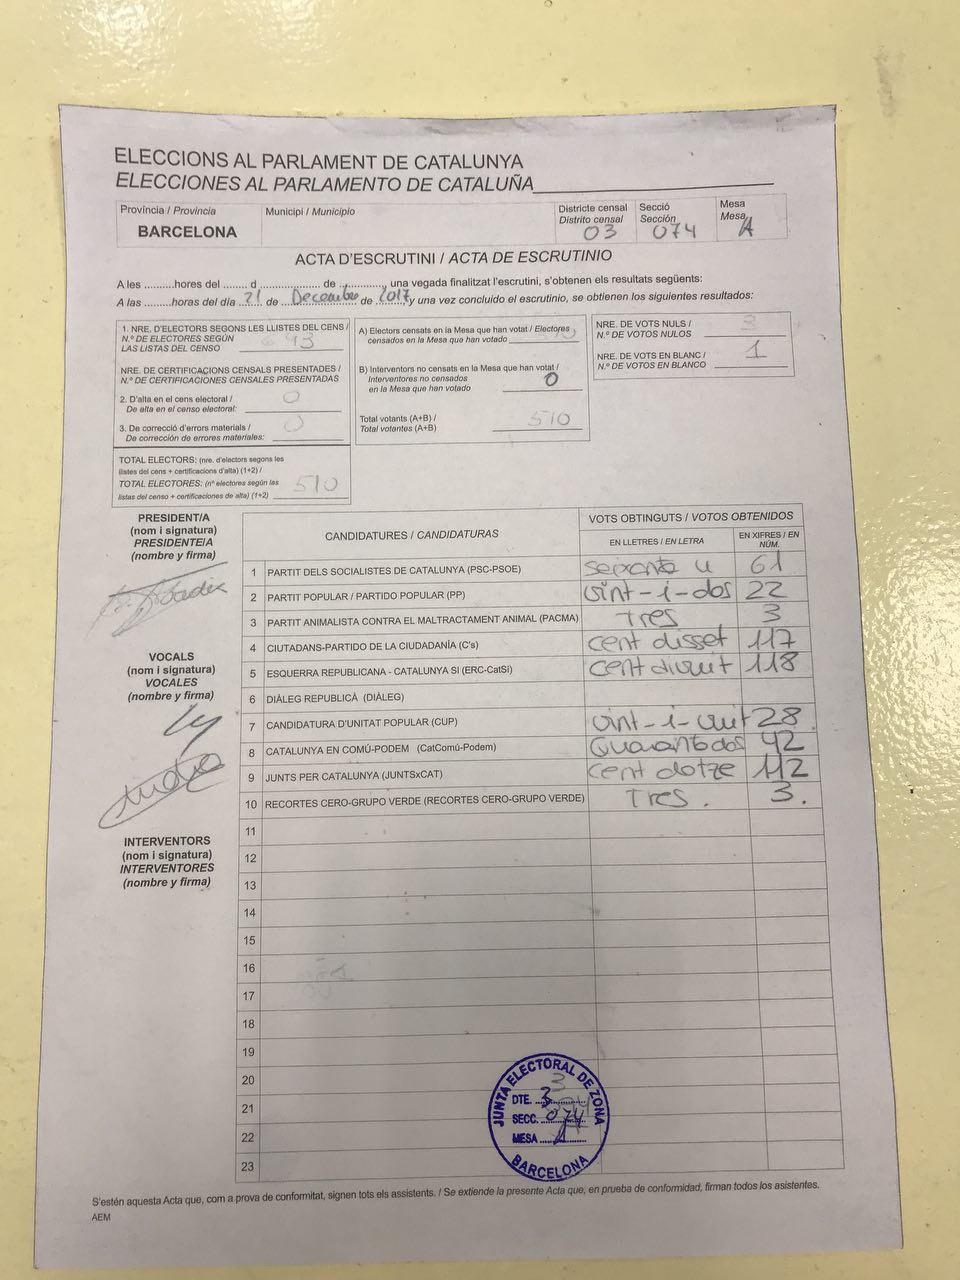 ELECCIONS AL PARLAMENT DE CATALUNYA
ELECCIONES AL PARLAMENTO DE CATALUÑA
Província / Provincia
BARCELONA
Municipi / Municipio
Districte censal
Distrito censal
03
Secció
Sección
074
Mesa
Mesa
A
ACTA D'ESCRUTINI / ACTA DE ESCRUTINIO
A les .........hores del ....... d ..................... de ..........., una vegada finalitzat l'escrutini, s'obtenen els resultats següents:
A las .........horas del día 21 de December de 2017 y una vez concluido el escrutinio, se obtienen los siguientes resultados:
1. NRE. D'ELECTORS SEGONS LES LLISTES DEL CENS /
N.º DE ELECTORES SEGÚN
LAS LISTAS DEL CENSO
NRE. DE CERTIFICACIONS CENSALS PRESENTADES /
N.º DE CERTIFICACIONES CENSALES PRESENTADAS
2. D'alta en el cens electoral /
De alta en el censo electoral:
0
3. De correcció d'errors materials /
De corrección de errores materiales:
0
TOTAL ELECTORS: (nre. d'electors segons les
llistes del cens + certificacions d'alta) (1+2) /
TOTAL ELECTORES: (nº electores según las
listas del censo + certificaciones de alta) (1+2)
510
A) Electors censats en la Mesa que han votat / Electores
censados en la Mesa que han votado
B) Interventors no censats en la Mesa que han votat /
Interventores no censados
en la Mesa que han votado
0
Total votants (A+B) /
Total votantes (A+B)
510
NRE. DE VOTS NULS /
N.º DE VOTOS NULOS
3
NRE. DE VOTS EN BLANC /
N.º DE VOTOS EN BLANCO
1
PRESIDENT/A
(nom i signatura)
PRESIDENTE/A
(nombre y firma)
VOCALS
(nom i signatura)
VOCALES
(nombre y firma)
INTERVENTORS
(nom i signatura)
INTERVENTORES
(nombre y firma)
CANDIDATURES / CANDIDATURAS
VOTS OBTINGUTS / VOTOS OBTENIDOS
EN LLETRES / EN LETRA
EN XIFRES / EN NÚM.
1 PARTIT DELS SOCIALISTES DE CATALUNYA (PSC-PSOE) seixanta u 61
2 PARTIT POPULAR / PARTIDO POPULAR (PP) vint-i-dos 22
3 PARTIT ANIMALISTA CONTRA EL MALTRACTAMENT ANIMAL (PACMA) Tres 3
4 CIUTADANS-PARTIDO DE LA CIUDADANÍA (C's) cent disset 117
5 ESQUERRA REPUBLICANA - CATALUNYA SI (ERC-CatSí) cent divuit 118
6 DIÀLEG REPUBLICÀ (DIÀLEG)
7 CANDIDATURA D'UNITAT POPULAR (CUP) vint-i-vuit 28
8 CATALUNYA EN COMÚ-PODEM (CatComú-Podem) Quarantados 42
9 JUNTS PER CATALUNYA (JUNTSxCAT) cent dotze 112
10 RECORTES CERO-GRUPO VERDE (RECORTES CERO-GRUPO VERDE) Tres. 3.
11
12
13
14
15
16
17
18
19
20
21
22
23
JUNTA ELECTORAL DE ZONA
DTE. 3
SECC. 074
MESA A
BARCELONA
S'estén aquesta Acta que, com a prova de conformitat, signen tots els assistents. / Se extiende la presente Acta que, en prueba de conformidad, firman todos los asistentes.
AEM